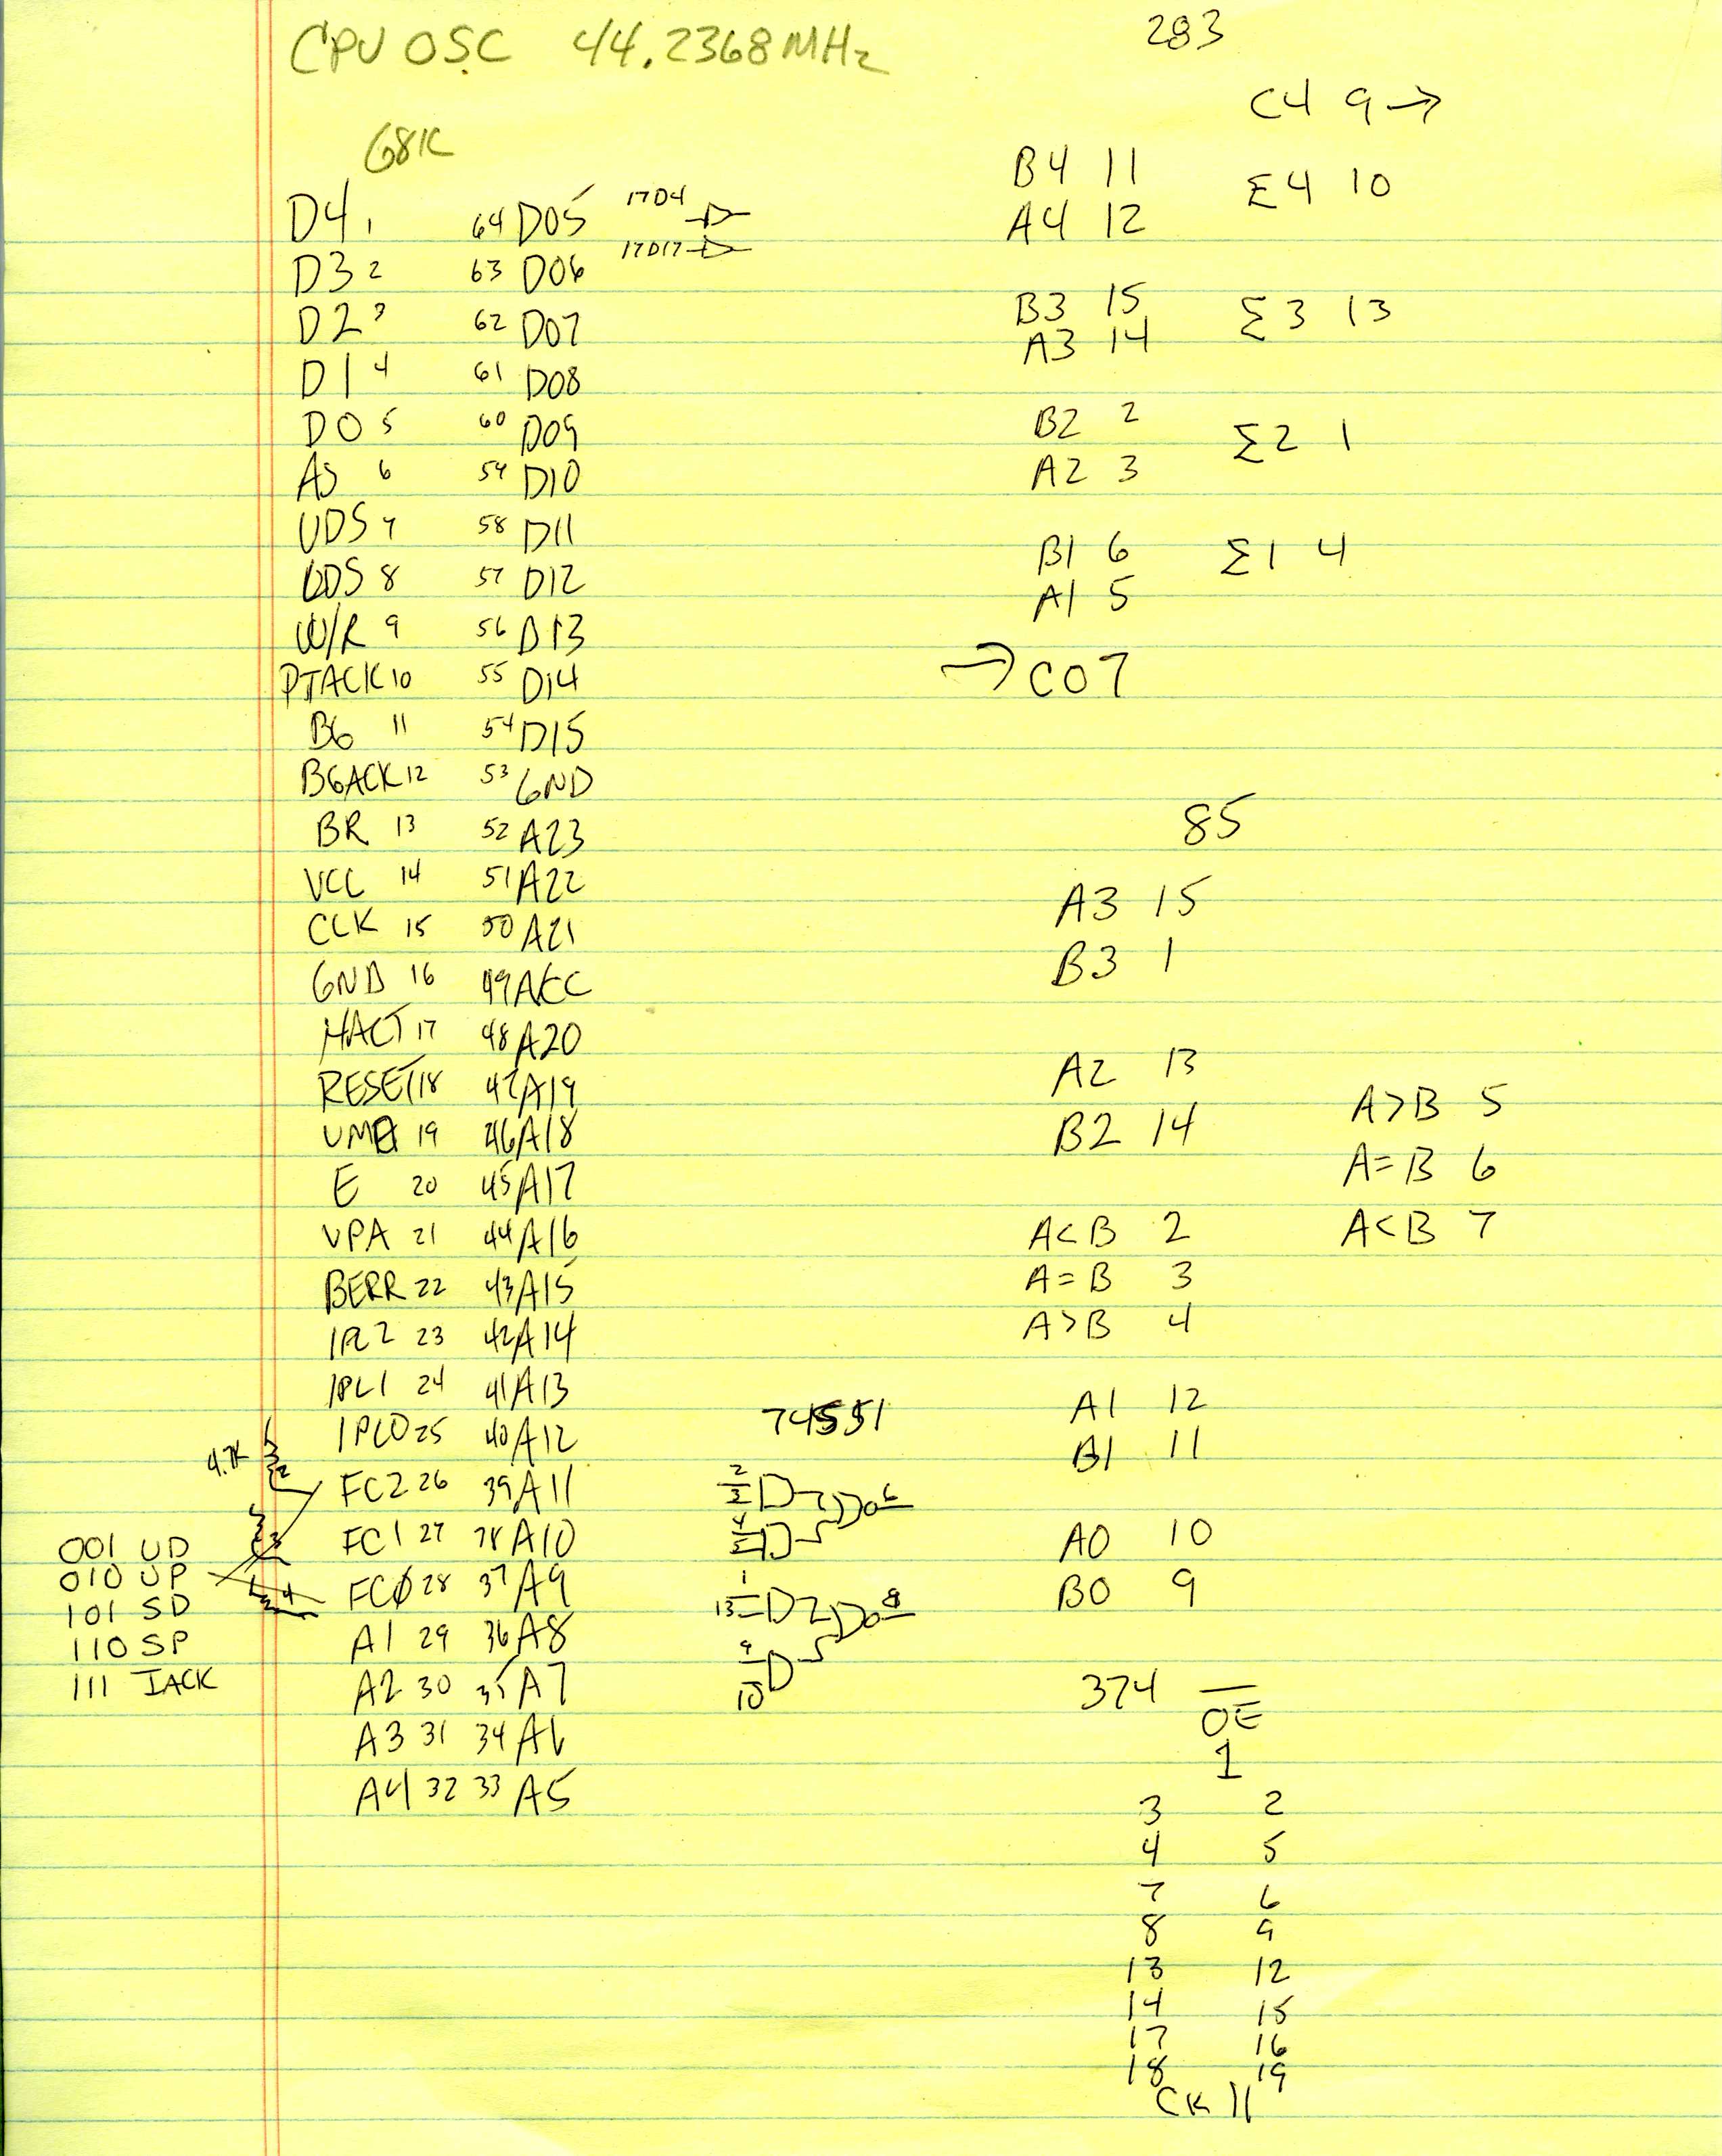 CPU OSC 44.2368MHz
68K
D4 1 64 D05 17D4
17D17
D3 2 63 D06
D2 3 62 D07
D1 4 61 D08
D0 5 60 D09
AS 6 59 D10
UDS 7 58 D11
LDS 8 57 D12
W/R 9 56 D13
DTACK 10 55 D14
BG 11 54 D15
BGACK 12 53 GND
BR 13 52 A23
VCC 14 51 A22
CLK 15 50 A21
GND 16 49
HALT 17 48 A20
RESET 18 47 A19
VMA 19 46 A18
E 20 45 A17
VPA 21 44 A16
BERR 22 43 A15
IPL2 23 42 A14
IPL1 24 41 A13
IPL0 25 40 A12
4.7K
FC2 26 39 A11
FC1 27 38 A10
FC0 28 37 A9
A1 29 36 A8
A2 30 35 A7
A3 31 34 A6
A4 32 33 A5
2
3
4
001 UD
010 UP
101 SD
110 SP
111 IACK
74S51
2
3
6
4
5
1
13
8
9
10
283
C4 9 →
B4 11
A4 12
Σ4 10
B3 15
A3 14
Σ3 13
B2 2
A2 3
Σ2 1
B1 6
A1 5
Σ1 4
→ C0 7
85
A3 15
B3 1
A2 13
B2 14
A<B 2
A=B 3
A>B 4
A>B 5
A=B 6
A<B 7
A1 12
B1 11
A0 10
B0 9
374 OE
1
3 2
4 5
7 6
8 9
13 12
14 15
17 16
18 19
CK 11